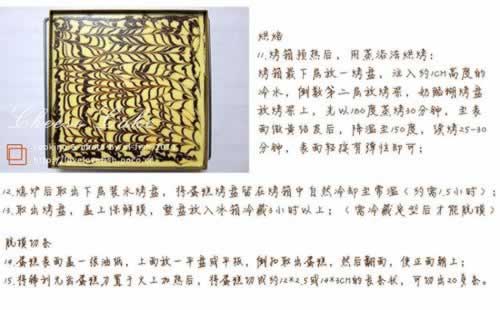 烘焙
11.烤箱预热后，用蒸浴法烘烤：
烤箱最下层放一烤盘，注入约1CM高度的
冷水，倒数第二层放烤架，奶酪糊烤盘
放烤架上，先以180度蒸烤30分钟，至表
面微黄结皮后，降温至150度，续烤25-30
分钟，表面轻按有弹性即可；
Cheese Cake
12.熄炉后取出下层装水烤盘，将蛋糕烤盘留在烤箱中自然冷却至常温（约需1.5小时）；
13.取出烤盘，盖上保鲜膜，整盘放入冰箱冷藏3小时以上；（需冷藏定型后才能脱模）
脱模切条
14.蛋糕表面盖一张油纸，上面放一平盘或平板，倒扣取出蛋糕，然后翻面，使正面朝上；
15.将锋利光面蛋糕刀置于火上加热后，将蛋糕切成约12*2.5或14*3CM的长条状，可切出20多条。